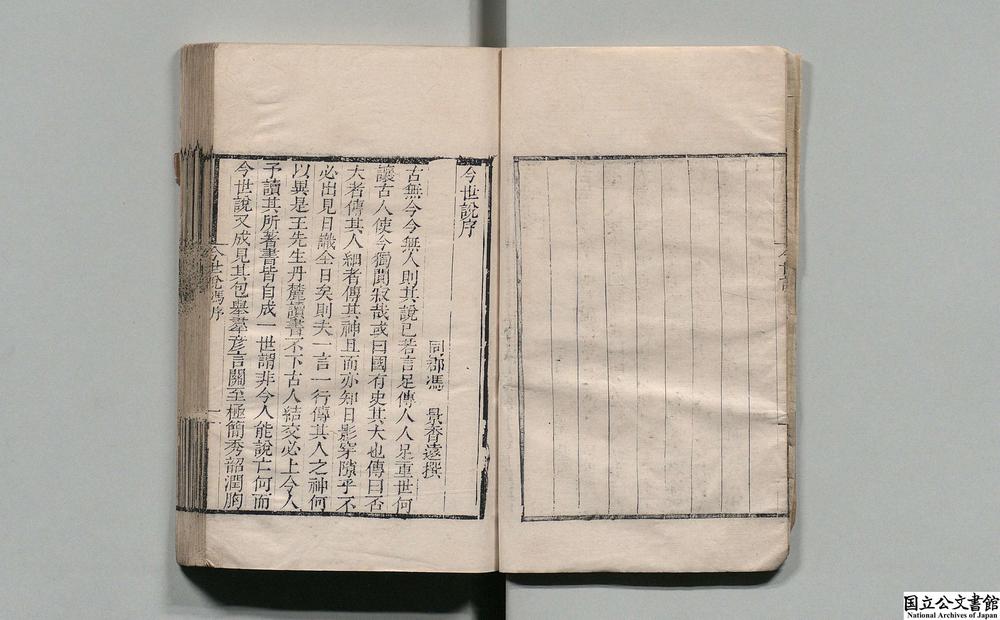 今世說
今世說序
同郡馮　景香遠撰
古無今今無人則其說已若言足傳人人足重世何
讓古人使今獨闃寂哉或曰國有史其大也傳曰否
大者傳其人細者傳其神且而亦知日影穿隙乎不
必出見日識全日矣則夫一言一行傳其人之神何
以異是王先生丹麓讀書不下古人結交必上今人
予讀其所著書皆自成一世謂非今人能說亡何而
今世說又成見其包舉羣彥言關至極簡秀韶潤胸
今世說馮序
一
国立公文書館
National Archives of Japan